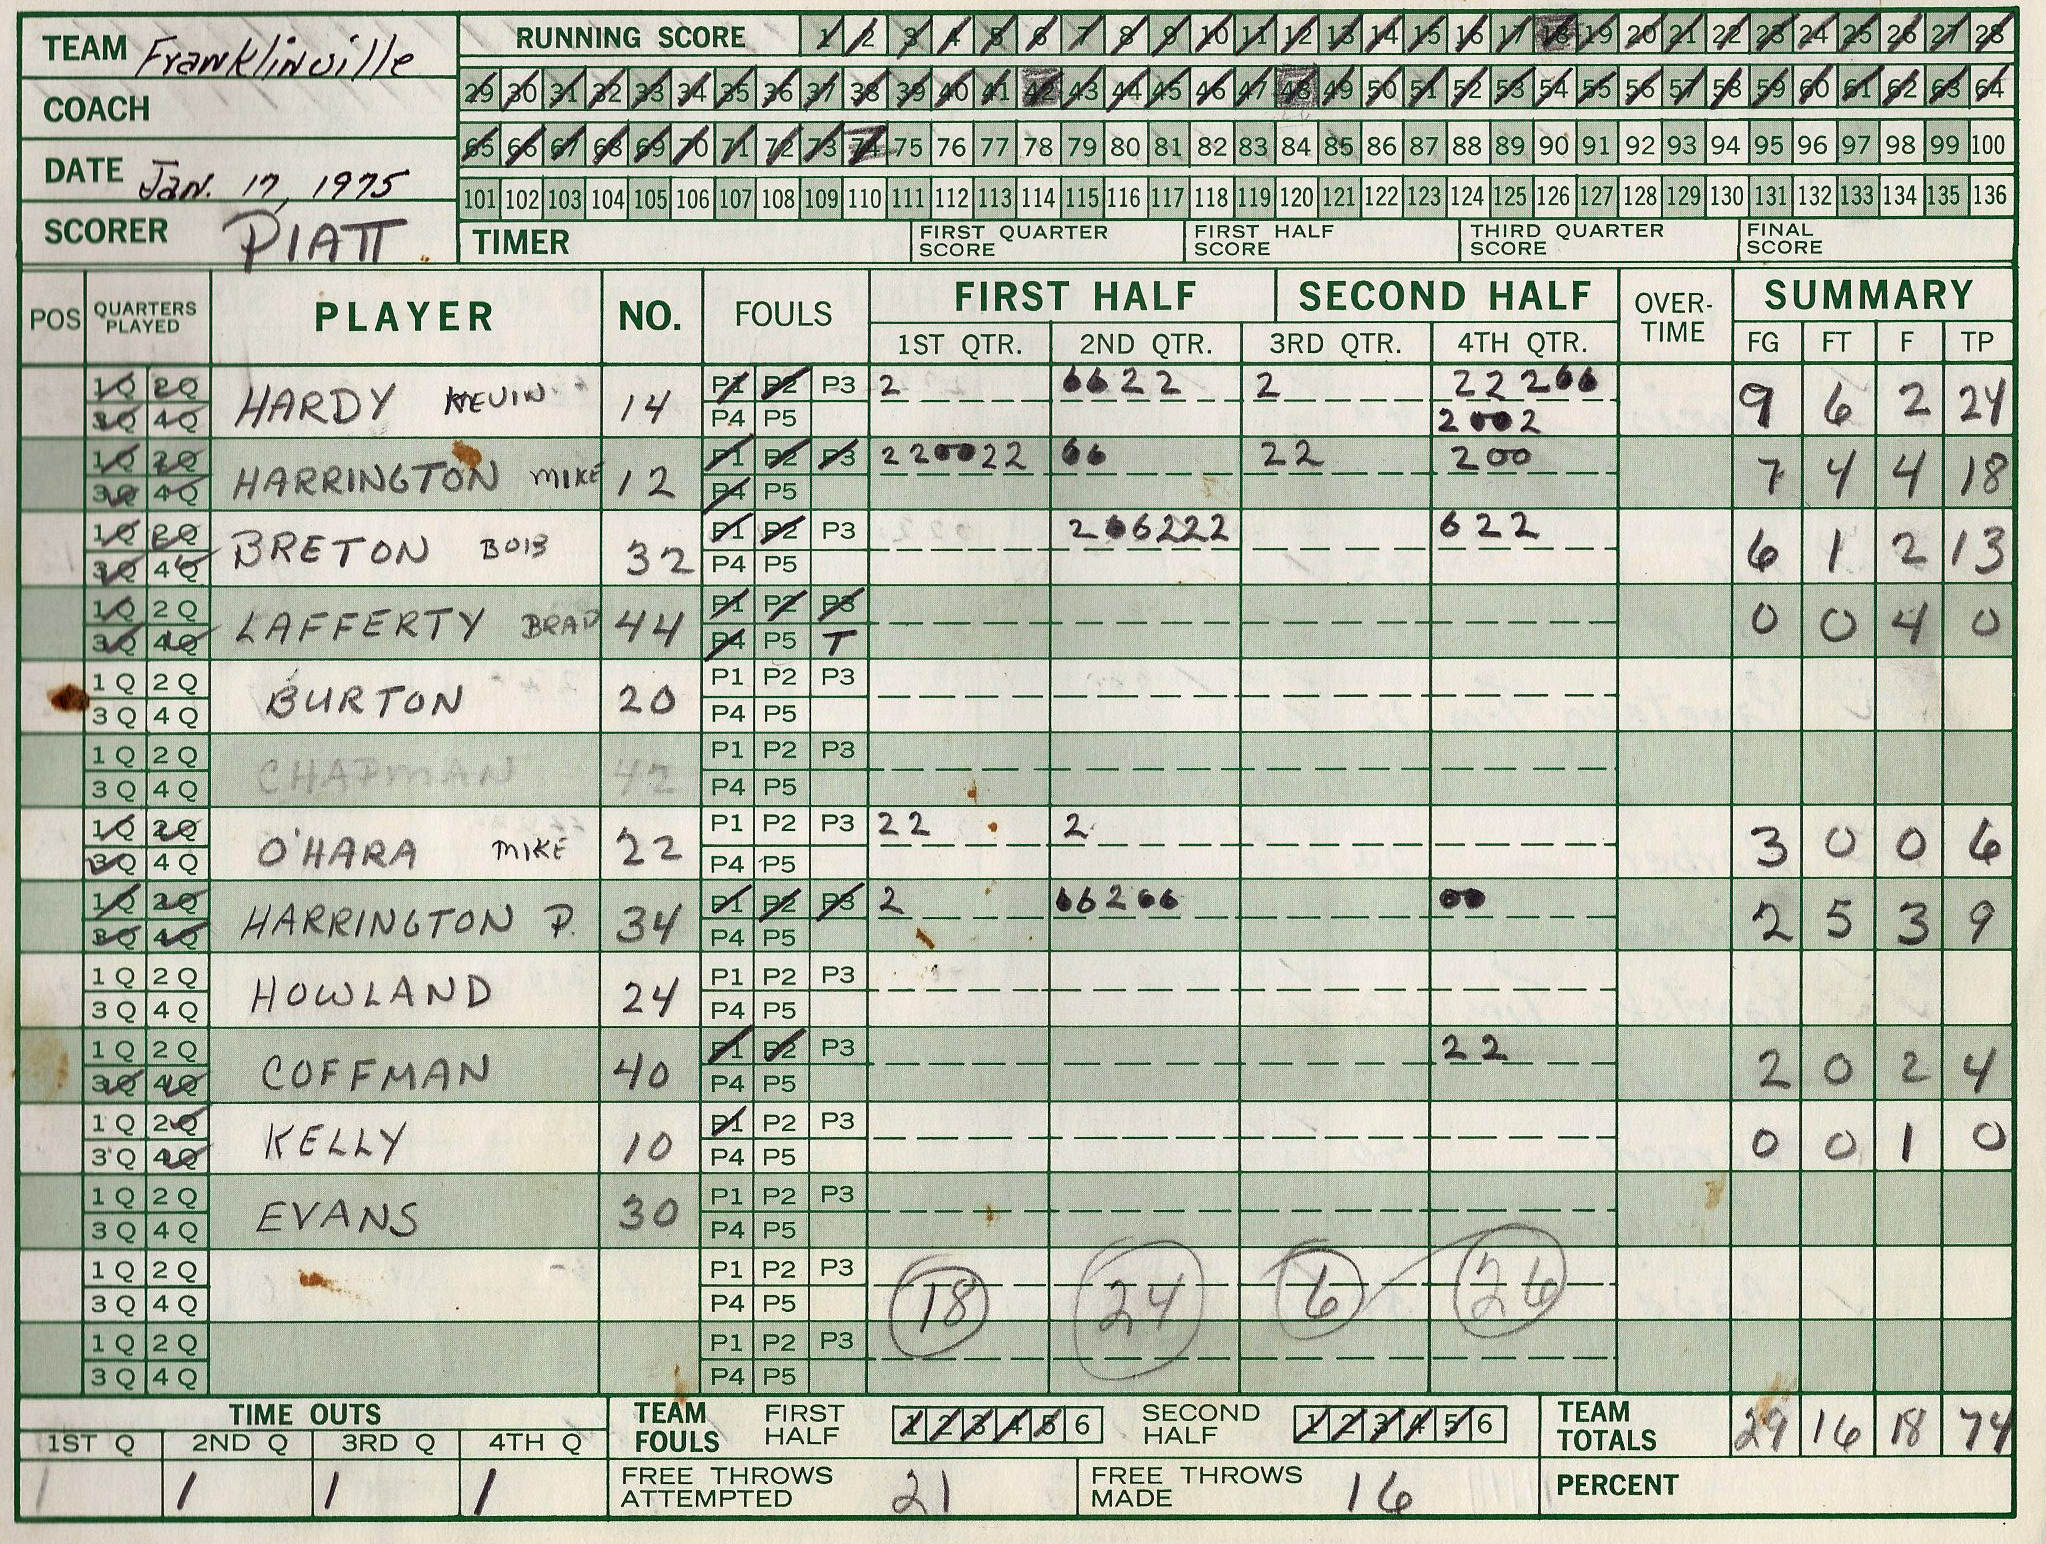 TEAM Franklinville
COACH
DATE Jan. 17, 1975
SCORER PIATT
RUNNING SCORE 1 2 3 4 5 6 7 8 9 10 11 12 13 14 15 16 17 18 19 20 21 22 23 24 25 26 27 28
29 30 31 32 33 34 35 36 37 38 39 40 41 42 43 44 45 46 47 48 49 50 51 52 53 54 55 56 57 58 59 60 61 62 63 64
65 66 67 68 69 70 71 72 73 74 75 76 77 78 79 80 81 82 83 84 85 86 87 88 89 90 91 92 93 94 95 96 97 98 99 100
101 102 103 104 105 106 107 108 109 110 111 112 113 114 115 116 117 118 119 120 121 122 123 124 125 126 127 128 129 130 131 132 133 134 135 136
TIMER FIRST QUARTER SCORE FIRST HALF SCORE THIRD QUARTER SCORE FINAL SCORE
POS QUARTERS PLAYED PLAYER NO. FOULS FIRST HALF SECOND HALF OVER-TIME SUMMARY
1ST QTR. 2ND QTR. 3RD QTR. 4TH QTR. FG FT F TP
1Q 2Q 3Q 4Q HARDY KEVIN 14 P1 P2 P3 P4 P5 2 6622 2 22266 2002 9 6 2 24
1Q 2Q 3Q 4Q HARRINGTON MIKE 12 P1 P2 P3 P4 P5 220022 66 22 200 7 4 4 18
1Q 2Q 3Q 4Q BRETON BOB 32 P1 P2 P3 P4 P5 266222 622 6 1 2 13
1Q 2Q 3Q 4Q LAFFERTY BRAD 44 P1 P2 P3 P4 P5 T 0 0 4 0
1Q 2Q 3Q 4Q BURTON 20 P1 P2 P3 P4 P5
1Q 2Q 3Q 4Q CHAPMAN 42 P1 P2 P3 P4 P5
1Q 2Q 3Q 4Q O'HARA MIKE 22 P1 P2 P3 P4 P5 22 2 3 0 0 6
1Q 2Q 3Q 4Q HARRINGTON P. 34 P1 P2 P3 P4 P5 2 66266 00 2 5 3 9
1Q 2Q 3Q 4Q HOWLAND 24 P1 P2 P3 P4 P5
1Q 2Q 3Q 4Q COFFMAN 40 P1 P2 P3 P4 P5 22 2 0 2 4
1Q 2Q 3Q 4Q KELLY 10 P1 P2 P3 P4 P5 0 0 1 0
1Q 2Q 3Q 4Q EVANS 30 P1 P2 P3 P4 P5
1Q 2Q 3Q 4Q P1 P2 P3 P4 P5 18 24 6 26
1Q 2Q 3Q 4Q P1 P2 P3 P4 P5
TIME OUTS TEAM FOULS FIRST HALF 1 2 3 4 5 6 SECOND HALF 1 2 3 4 5 6 TEAM TOTALS 29 16 18 74
1ST Q 2ND Q 3RD Q 4TH Q
1 1 1 1 FREE THROWS ATTEMPTED 21 FREE THROWS MADE 16 PERCENT